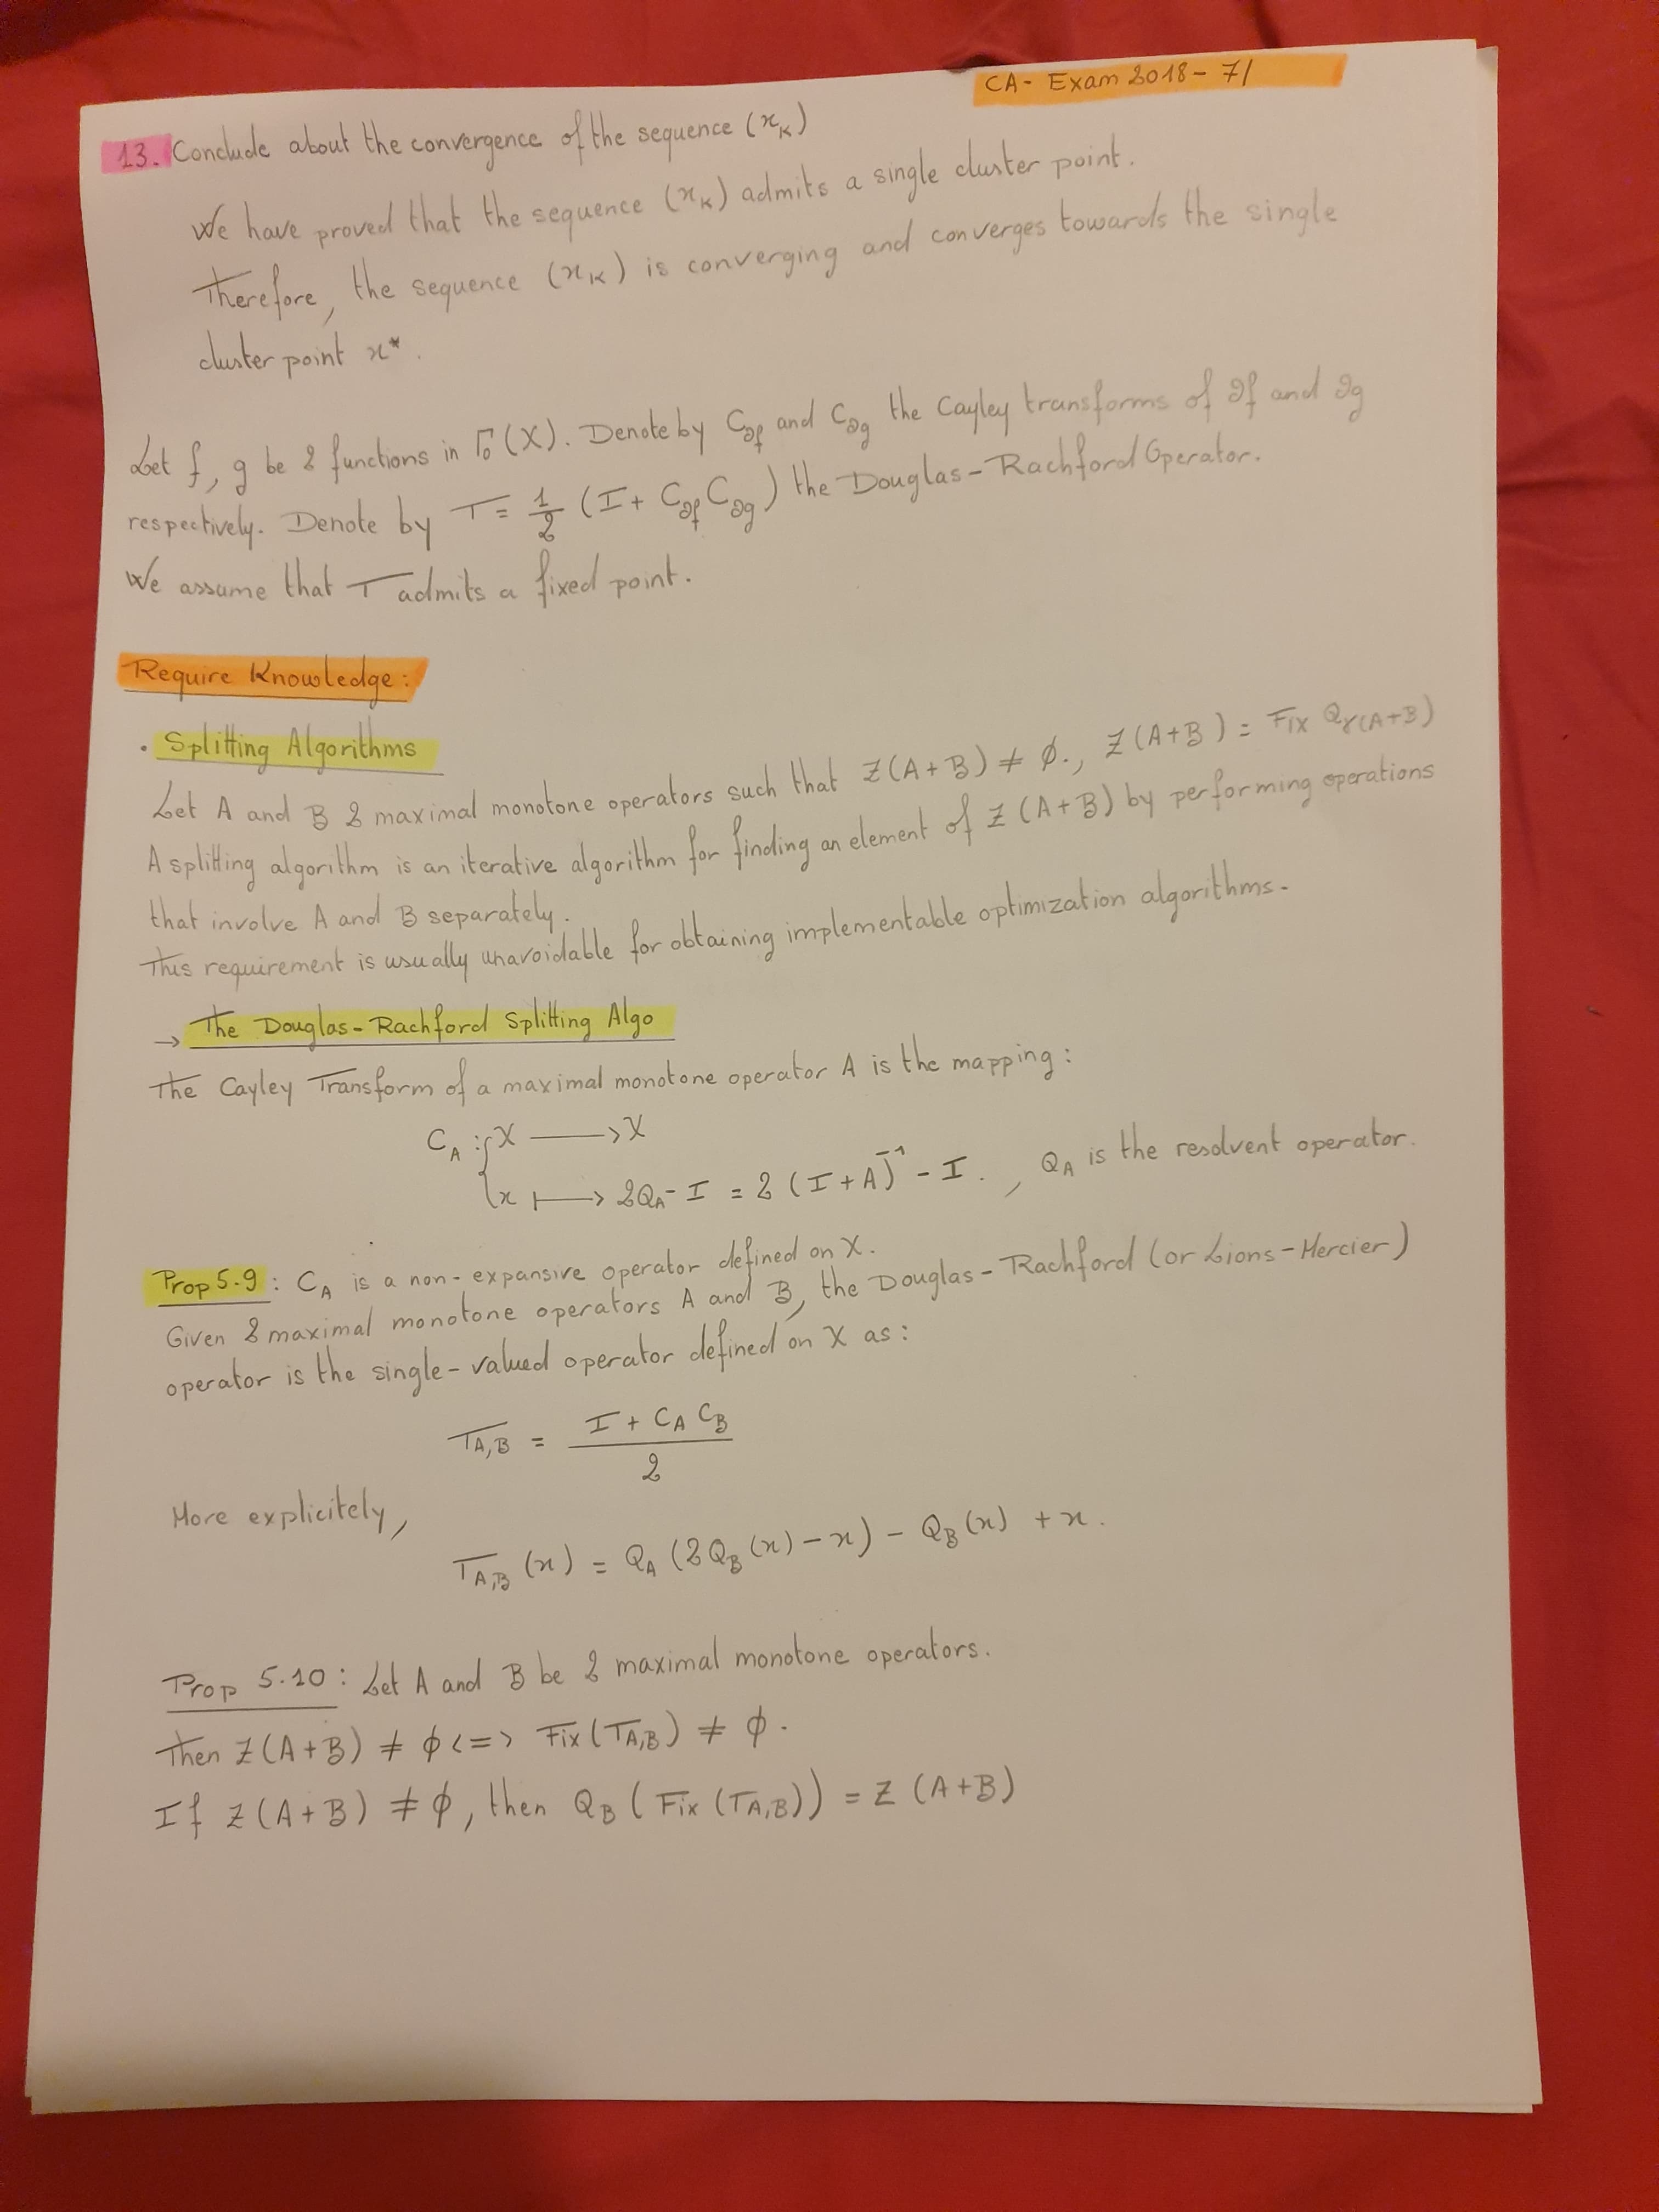 CA- Exam 2018- 7/
13. Conclude about the convergence of the sequence (x_K)
We have proved that the sequence (x_K) admits a single cluster point.
Therefore, the sequence (x_K) is converging and converges towards the single
cluster point x*.
Let f, g be 2 functions in Γ₀(X). Denote by C_∂f and C_∂g the Cayley transforms of ∂f and ∂g
respectively. Denote by T = 1/2 (I + C_∂f C_∂g) the Douglas-Rachford Operator.
We assume that T admits a fixed point.
Require Knowledge:
. Splitting Algorithms
Let A and B 2 maximal monotone operators such that Z(A+B) ≠ ∅., Z(A+B) = Fix Q_γ(A+B)
A splitting algorithm is an iterative algorithm for finding an element of Z(A+B) by performing operations
that involve A and B separately.
This requirement is usually unavoidable for obtaining implementable optimization algorithms.
→ The Douglas-Rachford Splitting Algo
The Cayley Transform of a maximal monotone operator A is the mapping:
C_A : { X ⟶ X
x ⟼ 2Q_A - I = 2(I+A)⁻¹ - I. , Q_A is the resolvent operator.
Prop 5.9 : C_A is a non-expansive operator defined on X.
Given 2 maximal monotone operators A and B, the Douglas-Rachford (or Lions-Mercier)
operator is the single-valued operator defined on X as:
T_A,B = (I + C_A C_B) / 2
More explicitely,
T_A,B (x) = Q_A (2Q_B (x) - x) - Q_B (x) + x.
Prop 5.10 : Let A and B be 2 maximal monotone operators.
Then Z(A+B) ≠ ∅ <=> Fix(T_A,B) ≠ ∅.
If Z(A+B) ≠ ∅, then Q_B (Fix (T_A,B)) = Z (A+B)